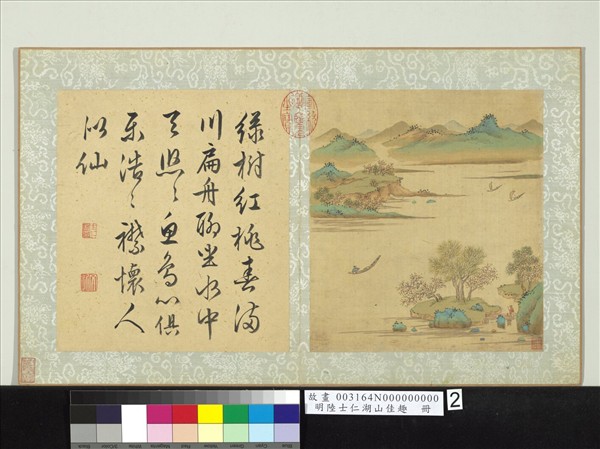 綠樹紅桃春滿
川扁舟聊坐水中
天熙々魚鳥心俱
樂浩々襟懷人
似仙
故畫 003164N000000000
明陸士仁湖山佳趣 冊
2